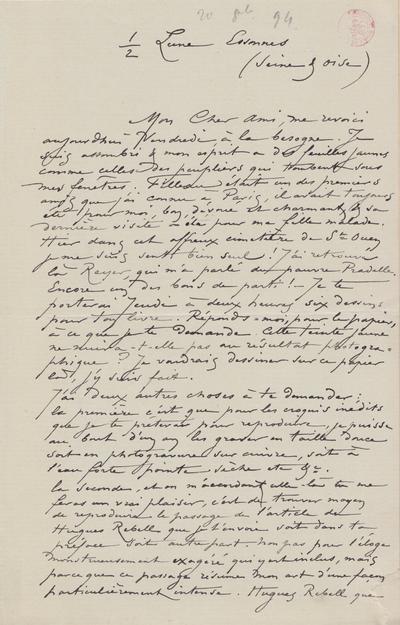 20 9bre 94
1/2 Lune Essonnes
(Seine & Oise)
Mon Cher Ami, me revoici
aujourd'hui Vendredi, à la besogne. Je
suis assombri & mon esprit a des feuilles jaunes
comme celles des peupliers qui tombent sous
mes fenêtres. était un des premiers
amis que j'ai connu à Paris, il avait toujours
été pour moi, bon, dévoué et charmant, & sa
dernière visite a été pour ma fille malade.
Hier dans cet affreux cimetière de St Ouen
je me suis senti bien seul ! J'ai retrouvé
là Rayer, qui m'a parlé du pauvre Pradelle.
Encore un des bons de parti ! — Je te
porterai Jeudi à deux heures six dessins
pour ton livre. Réponds-moi, pour le papier,
à ce que je te demande. Cette teinte jaune
ne nuira-t-elle pas au résultat photogra-
phique ? Je voudrais dessiner sur ce papier
là, j'y suis fait.
J'ai deux autres choses à te demander :
la première c'est que pour les croquis inédits
que je te preterai pour reproduire, je puisse
au bout d'un an les graver en taille douce
soit en photogravure sur cuivre, soit à
l'eau forte pointe sèche etc &c.
la seconde, et en m'accordant celle-là tu me
feras un vrai plaisir, c'est de trouver moyen
de reproduire le passage de l'article de
Hugues Rebell que je t'envoie soit dans ta
préface soit autre part. non pas pour l'éloge
monstrueusement exagéré qui y est inclus, mais
parce que ce passage résume mon art d'une façon
particulièrement intense. Hugues Rebell que